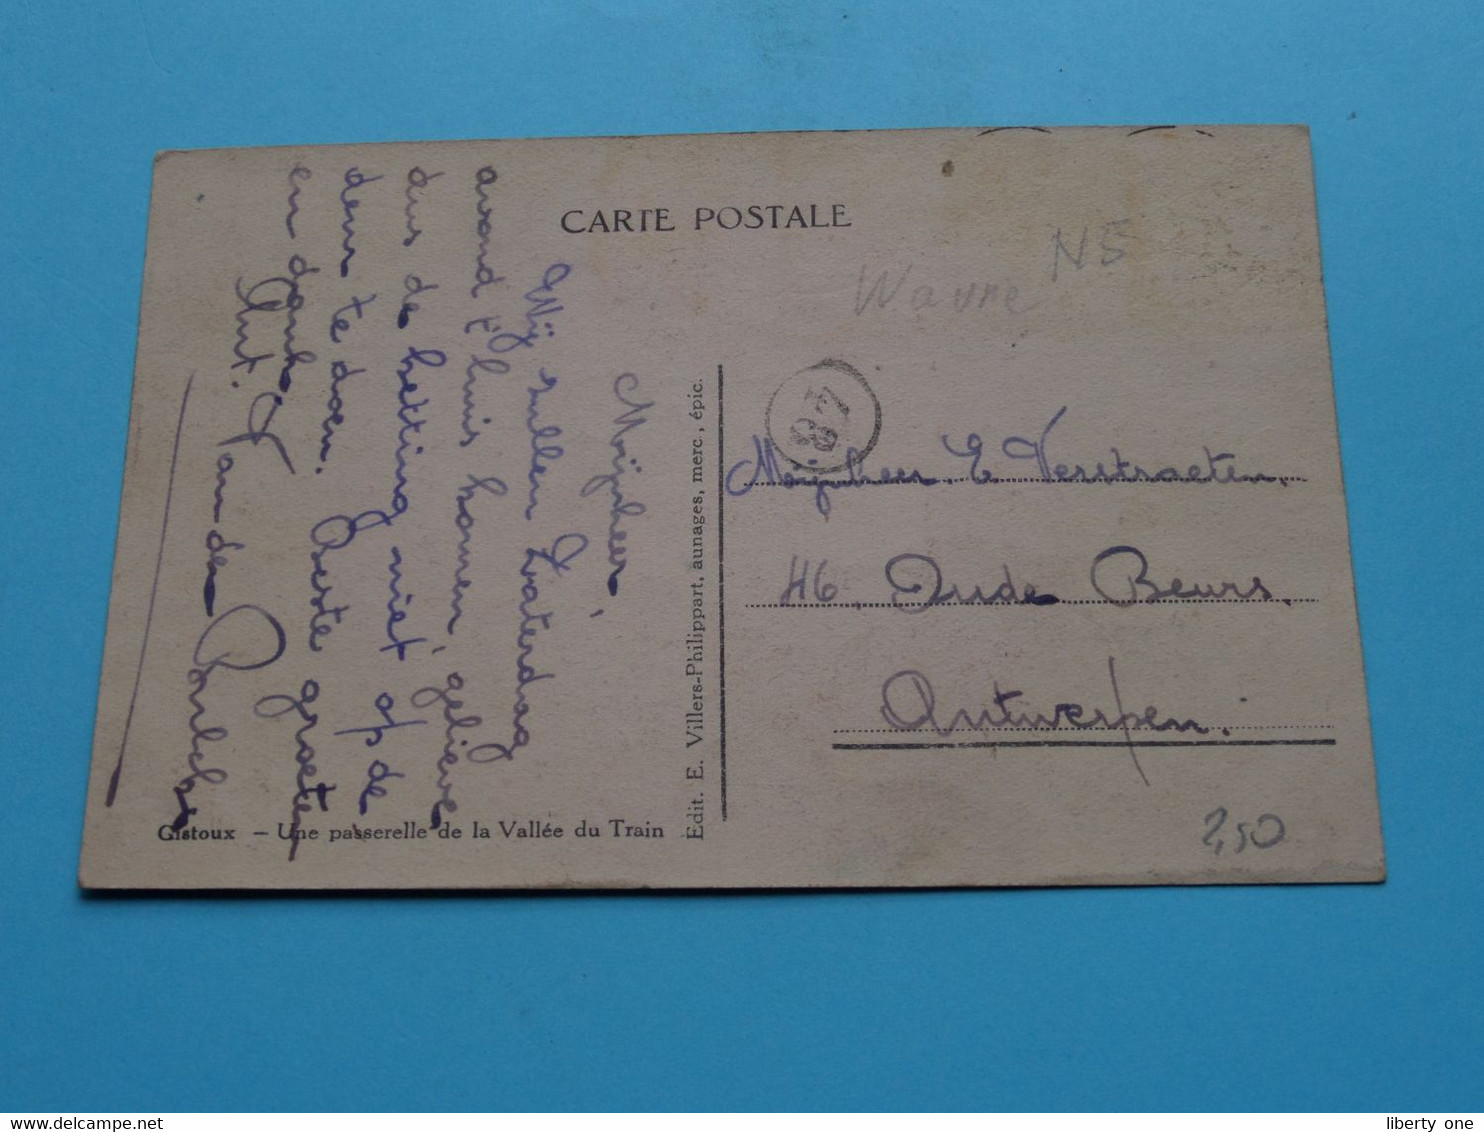 CARTE POSTALE
Wavre
N5
Mijnheer,
Wij zullen Zaterdag
avond t'huis komen, gelieve
dus de ketting niet op de
deur te doen. Beste groeten
en dank.
Ant. Van der
Mijnheer E. Verstraeten.
46. Oude Beurs.
Antwerpen.
Edit. E. Villers-Philippart, aunages, merc., épic.
Gistoux — Une passerelle de la Vallée du Train
2,50
liberty one